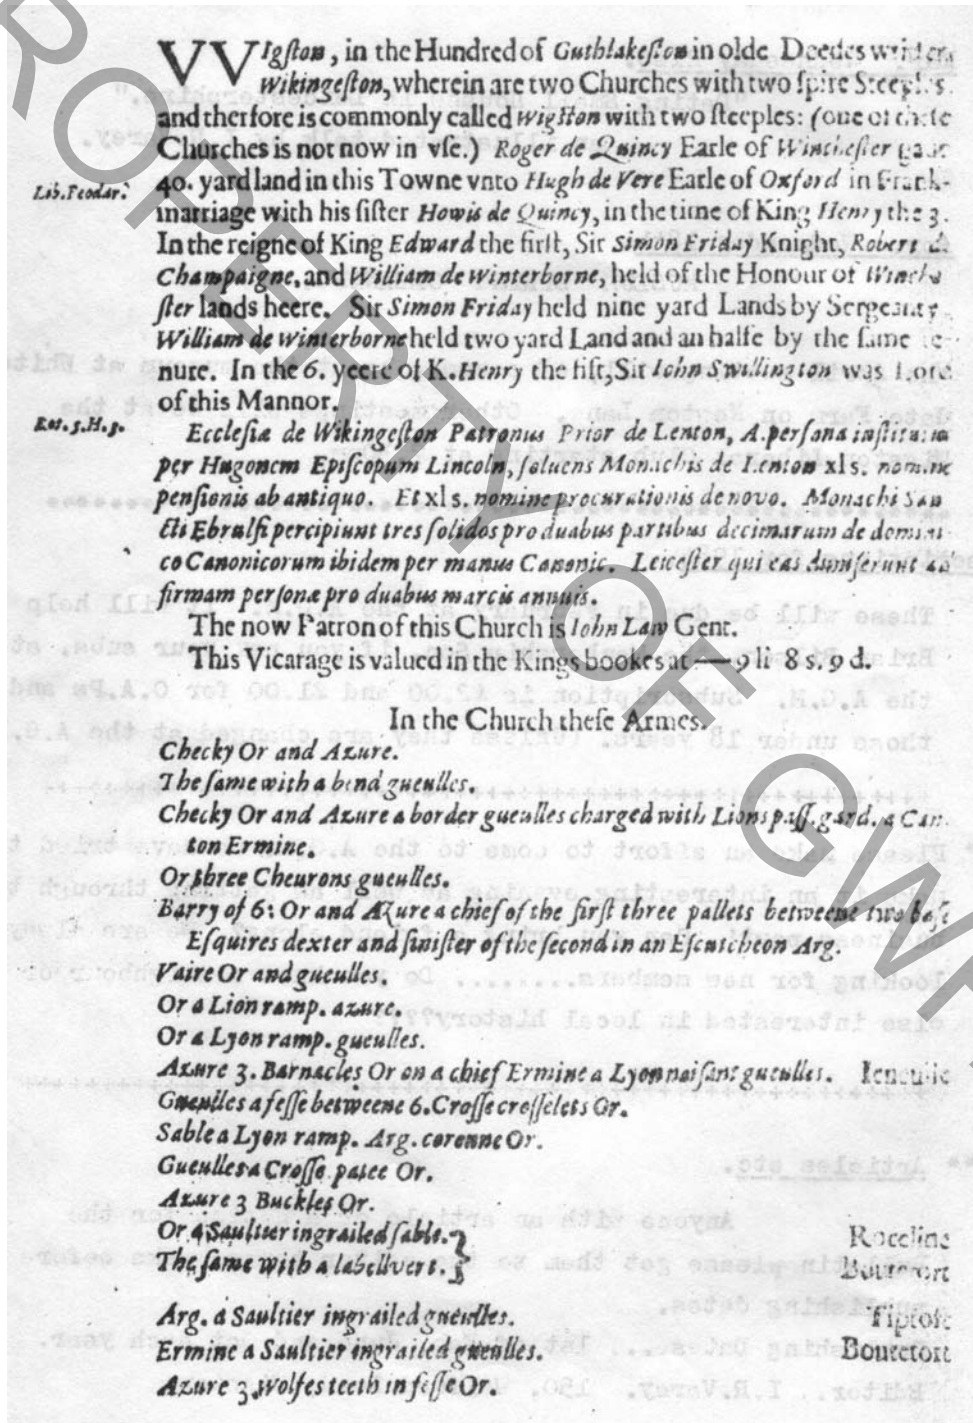 VVIgſton, in the Hundred of Guthlakeſton in olde Deedes written
Wikingeſton, wherein are two Churches with two ſpire Steeples.
and therfore is commonly called Wigſton with two ſteeples: (one of theſe
Churches is not now in vſe.) Roger de Quincy Earle of Wincheſter gaue
Lib. Feodar. 40. yard land in this Towne vnto Hugh de Vere Earle of Oxford in Frank-
marriage with his ſiſter Howis de Quincy, in the time of King Henry the 3.
In the reigne of King Edward the firſt, Sir Simon Friday Knight, Robert de
Champaigne, and William de Winterborne, held of the Honour of Winche
ſter lands heere. Sir Simon Friday held nine yard Lands by Sergeanty
William de Winterborne held two yard Land and an halfe by the ſame te-
nure. In the 6. yeere of K. Henry the fift, Sir Iohn Swillington was Lord
of this Mannor.
Rot. 5. H. 3. Eccleſiæ de Wikingeſton Patronus Prior de Lenton, A. perſona inſtituta
per Hugonem Epiſcopum Lincoln, ſoluens Monachis de Lenton xls. nomine
penſionis ab antiquo. Et xls. nomine procurationis de novo. Monachi San
cti Ebralſi percipiunt tres ſolidos pro duabus partibus decimarum de domini
co Canonicorum ibidem per manus Canonic. Leiceſter qui eas dimiſerunt ad
firmam perſonæ pro duabus marcis annuis.
The now Patron of this Church is Iohn Law Gent.
This Vicarage is valued in the Kings bookes at — 9 li 8 s. 9 d.
In the Church theſe Armes.
Checky Or and Azure.
The ſame with a bend gueulles.
Checky Or and Azure a border gueulles charged with Lions paſſ. gard. a Can-
ton Ermine.
Or three Cheurons gueulles.
Barry of 6: Or and Azure a chief of the firſt three pallets betweene two baſe
Eſquires dexter and ſiniſter of the ſecond in an Eſcutcheon Arg.
Vaire Or and gueulles.
Or a Lion ramp. azure.
Or a Lyon ramp. gueulles.
Azure 3. Barnacles Or on a chief Ermine a Lyon naiſant gueulles.
Gueulles a feſſe betweene 6. Croſſe croſſelets Or.
Sable a Lyon ramp. Arg. coronne Or.
Gueulles a Croſſe patee Or.
Azure 3 Buckles Or.
Or a Saultier ingrailed ſable. } Roceline
The ſame with a labell vert. } Boutetort
Arg. a Saultier ingrailed gueulles. Tiptoft
Ermine a Saultier ingrailed gueulles. Boutetort
Azure 3 Wolfes teeth in feſſe Or.
PROPERTY OF GWH